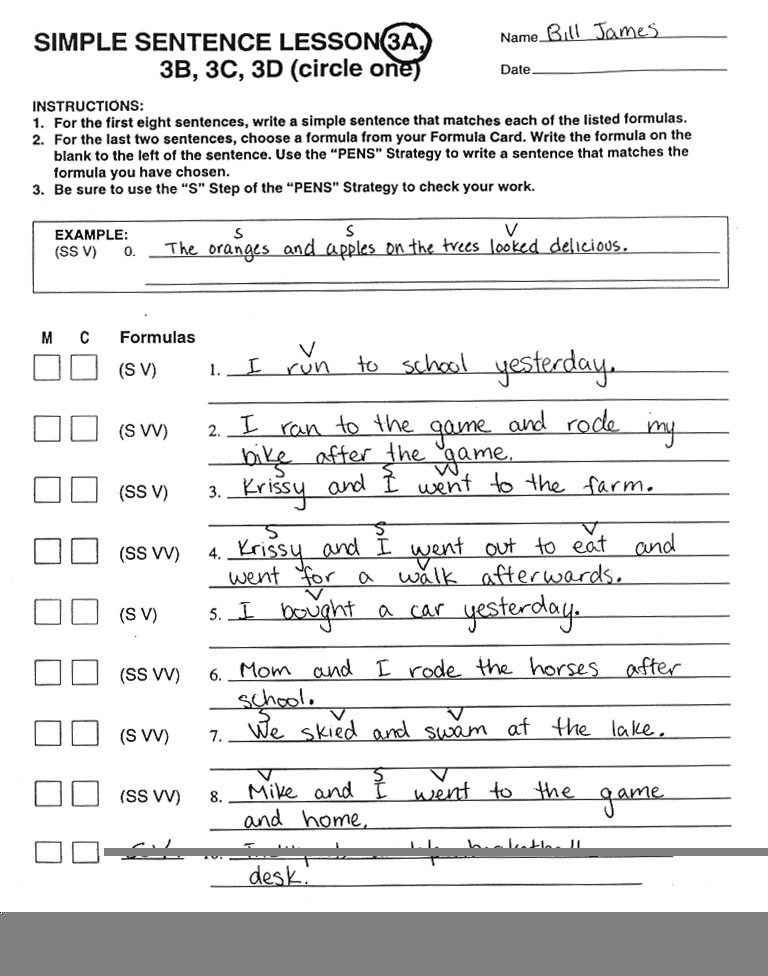 SIMPLE SENTENCE LESSON 3A,
3B, 3C, 3D (circle one)
Name Bill James
Date
INSTRUCTIONS:
1. For the first eight sentences, write a simple sentence that matches each of the listed formulas.
2. For the last two sentences, choose a formula from your Formula Card. Write the formula on the
blank to the left of the sentence. Use the “PENS” Strategy to write a sentence that matches the
formula you have chosen.
3. Be sure to use the “S” Step of the “PENS” Strategy to check your work.
EXAMPLE:
S S V
(SS V) 0. The oranges and apples on the trees looked delicious.
M C Formulas
V
(S V) 1. I run to school yesterday.
(S VV) 2. I ran to the game and rode my
bike after the game.
S S VV
(SS V) 3. Krissy and I went to the farm.
S S V
(SS VV) 4. Krissy and I went out to eat and
V
went for a walk afterwards.
V
(S V) 5. I bought a car yesterday.
(SS VV) 6. Mom and I rode the horses after
school.
S V V
(S VV) 7. We skied and swam at the lake.
V S V
(SS VV) 8. Mike and I went to the game
and home.
desk.